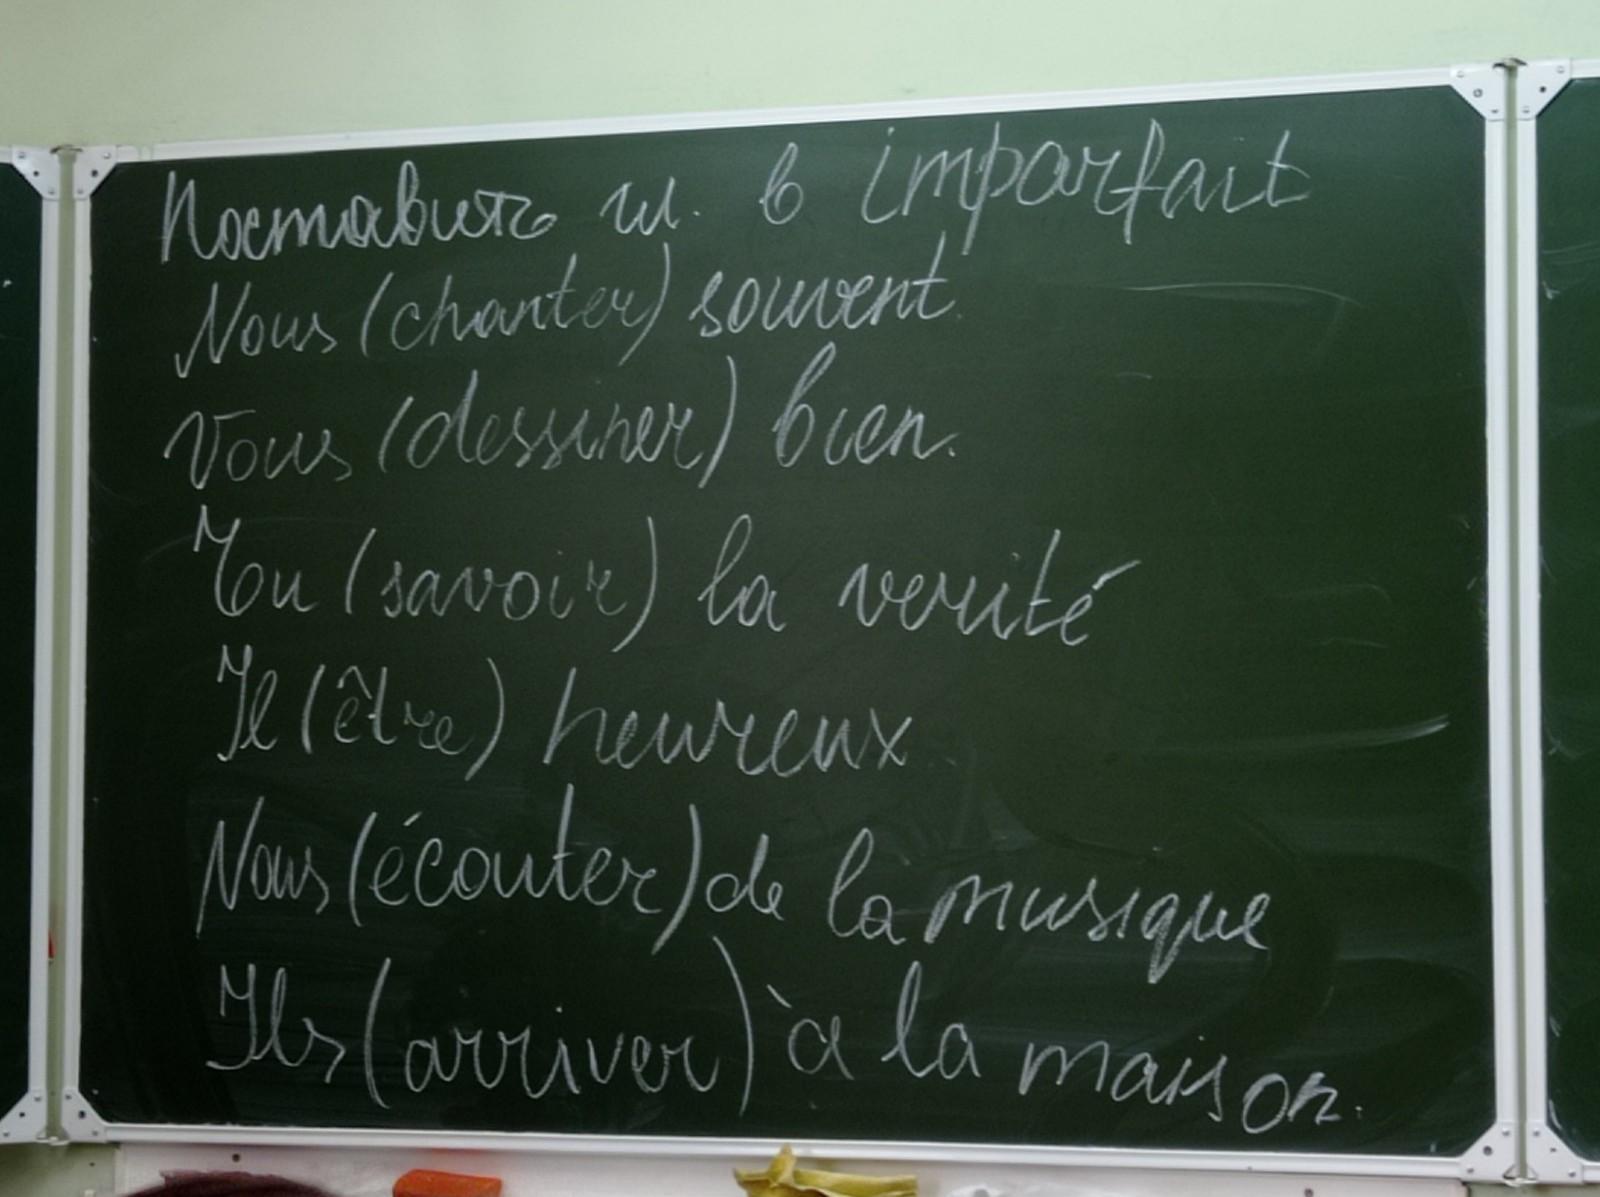 Поставить гл. в imparfait
Nous (chanter) souvent.
Vous (dessiner) bien.
Tu (savoir) la verité
Il (être) heureux
Nous (écouter) de la musique
Ils (arriver) à la maison.